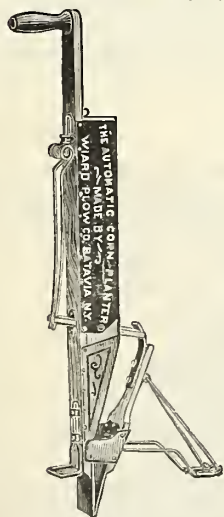 THE AUTOMATIC CORN PLANTER
MADE BY
WIARD PLOW CO. BATAVIA N.Y.